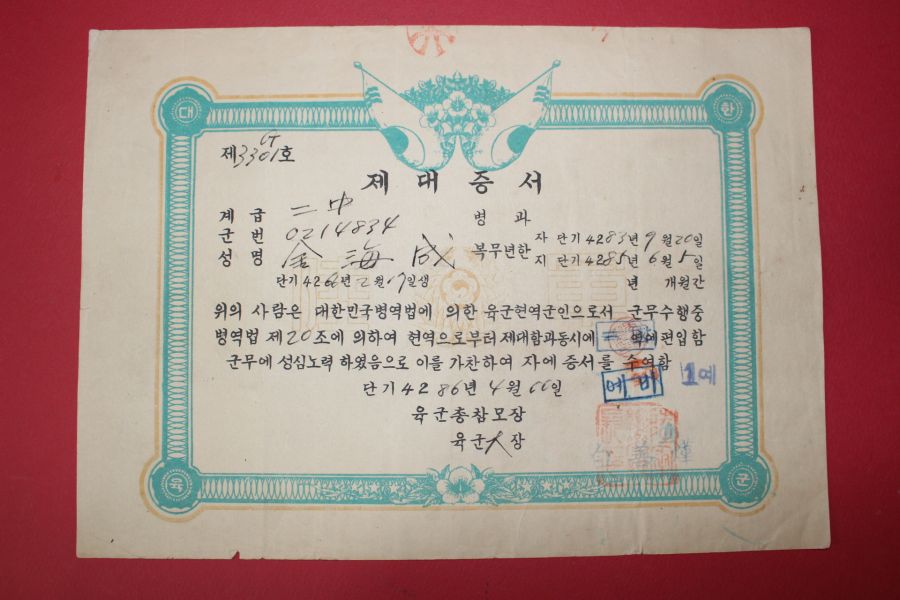 대 한
제3301호
제대증서
계급 二中
병과
군번 0214834
성명 金海成
복무년한
자 단기4283년9월20일
지 단기4285년6월5일
년 개월간
단기4266년2월 일생
위의 사람은 대한민국병역법에 의한 육군현역군인으로서 군무수행중
병역법 제20조에 의하여 현역으로부터 제대함과동시에 역에편입함
군무에 성심노력 하였음으로 이를 가찬하여 자에 증서를 수여함
예비 1예
단기4286년4월 일
육군총참모장
육군 장
육 군